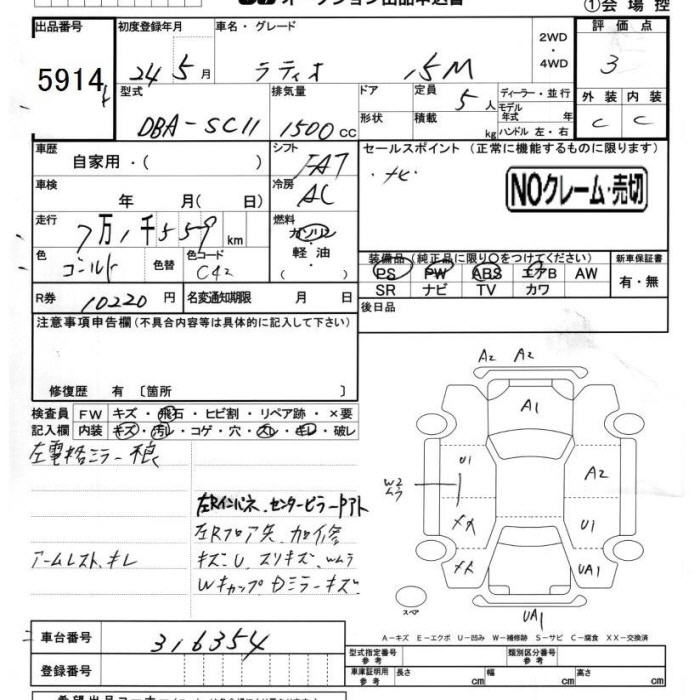 オークション出品申込書
①会場控
出品番号 初度登録年月 車名・グレード 2WD ・ 4WD 評価点
5914 24年5月 ラティオ 15M 3
型式 排気量 ドア 定員 ディーラー・並行 外装 内装
DBA-SC11 1500cc 5人 モデル年式 年 C C
形状 積載 kg ハンドル 左・右
車歴 自家用・( ) シフト FAT セールスポイント (正常に機能するものに限ります)
・ナビ・ NOクレーム・売切
車検 年 月( 日) 冷房 AC
走行 7万1千559km 燃料 ガソリン ・ 軽油 ・ ( )
色 ゴールド 色替 色コード C42
装備品 (純正品に限り○をつけてください) 新車保証書
PS PW ABS エアB AW 有・無
SR ナビ TV カワ
R券 10220円 名変通知期限 月 日 後日品
注意事項申告欄 (不具合内容等は具体的に記入して下さい)
修復歴 有 〔箇所 〕
検査員記入欄 FW キズ・飛石・ヒビ割・リペア跡・×要
内装 キズ・汚レ・コゲ・穴・スレ・キレ・破レ
左電格ミラー根
左Rインパネ、センターピラー
左Rフロア先、加修
アームレスト、キレ キズU、スリキズ、Wムラ
Wキャップ Dミラーキズ
A2 A2
A1
U1
W2
ムラ
A2
U1
UA1
UA1
スペア
A-キズ E-エクボ U-凹み W-補修跡 S-サビ C-腐食 XX-交換済
車台番号 316354
型式指定番号 参考 類別区分番号 参考
登録番号 車庫証明用 参考 長さ cm 幅 cm 高さ cm